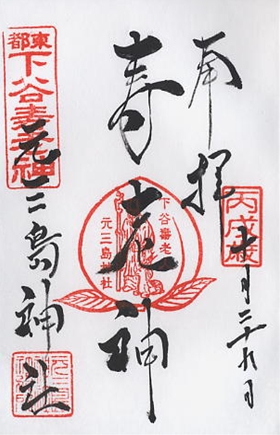 奉拝
丙戌歳
十月二十九日
寿老神
下谷寿老
元三島神社
東都
下谷寿老神
元三島神社